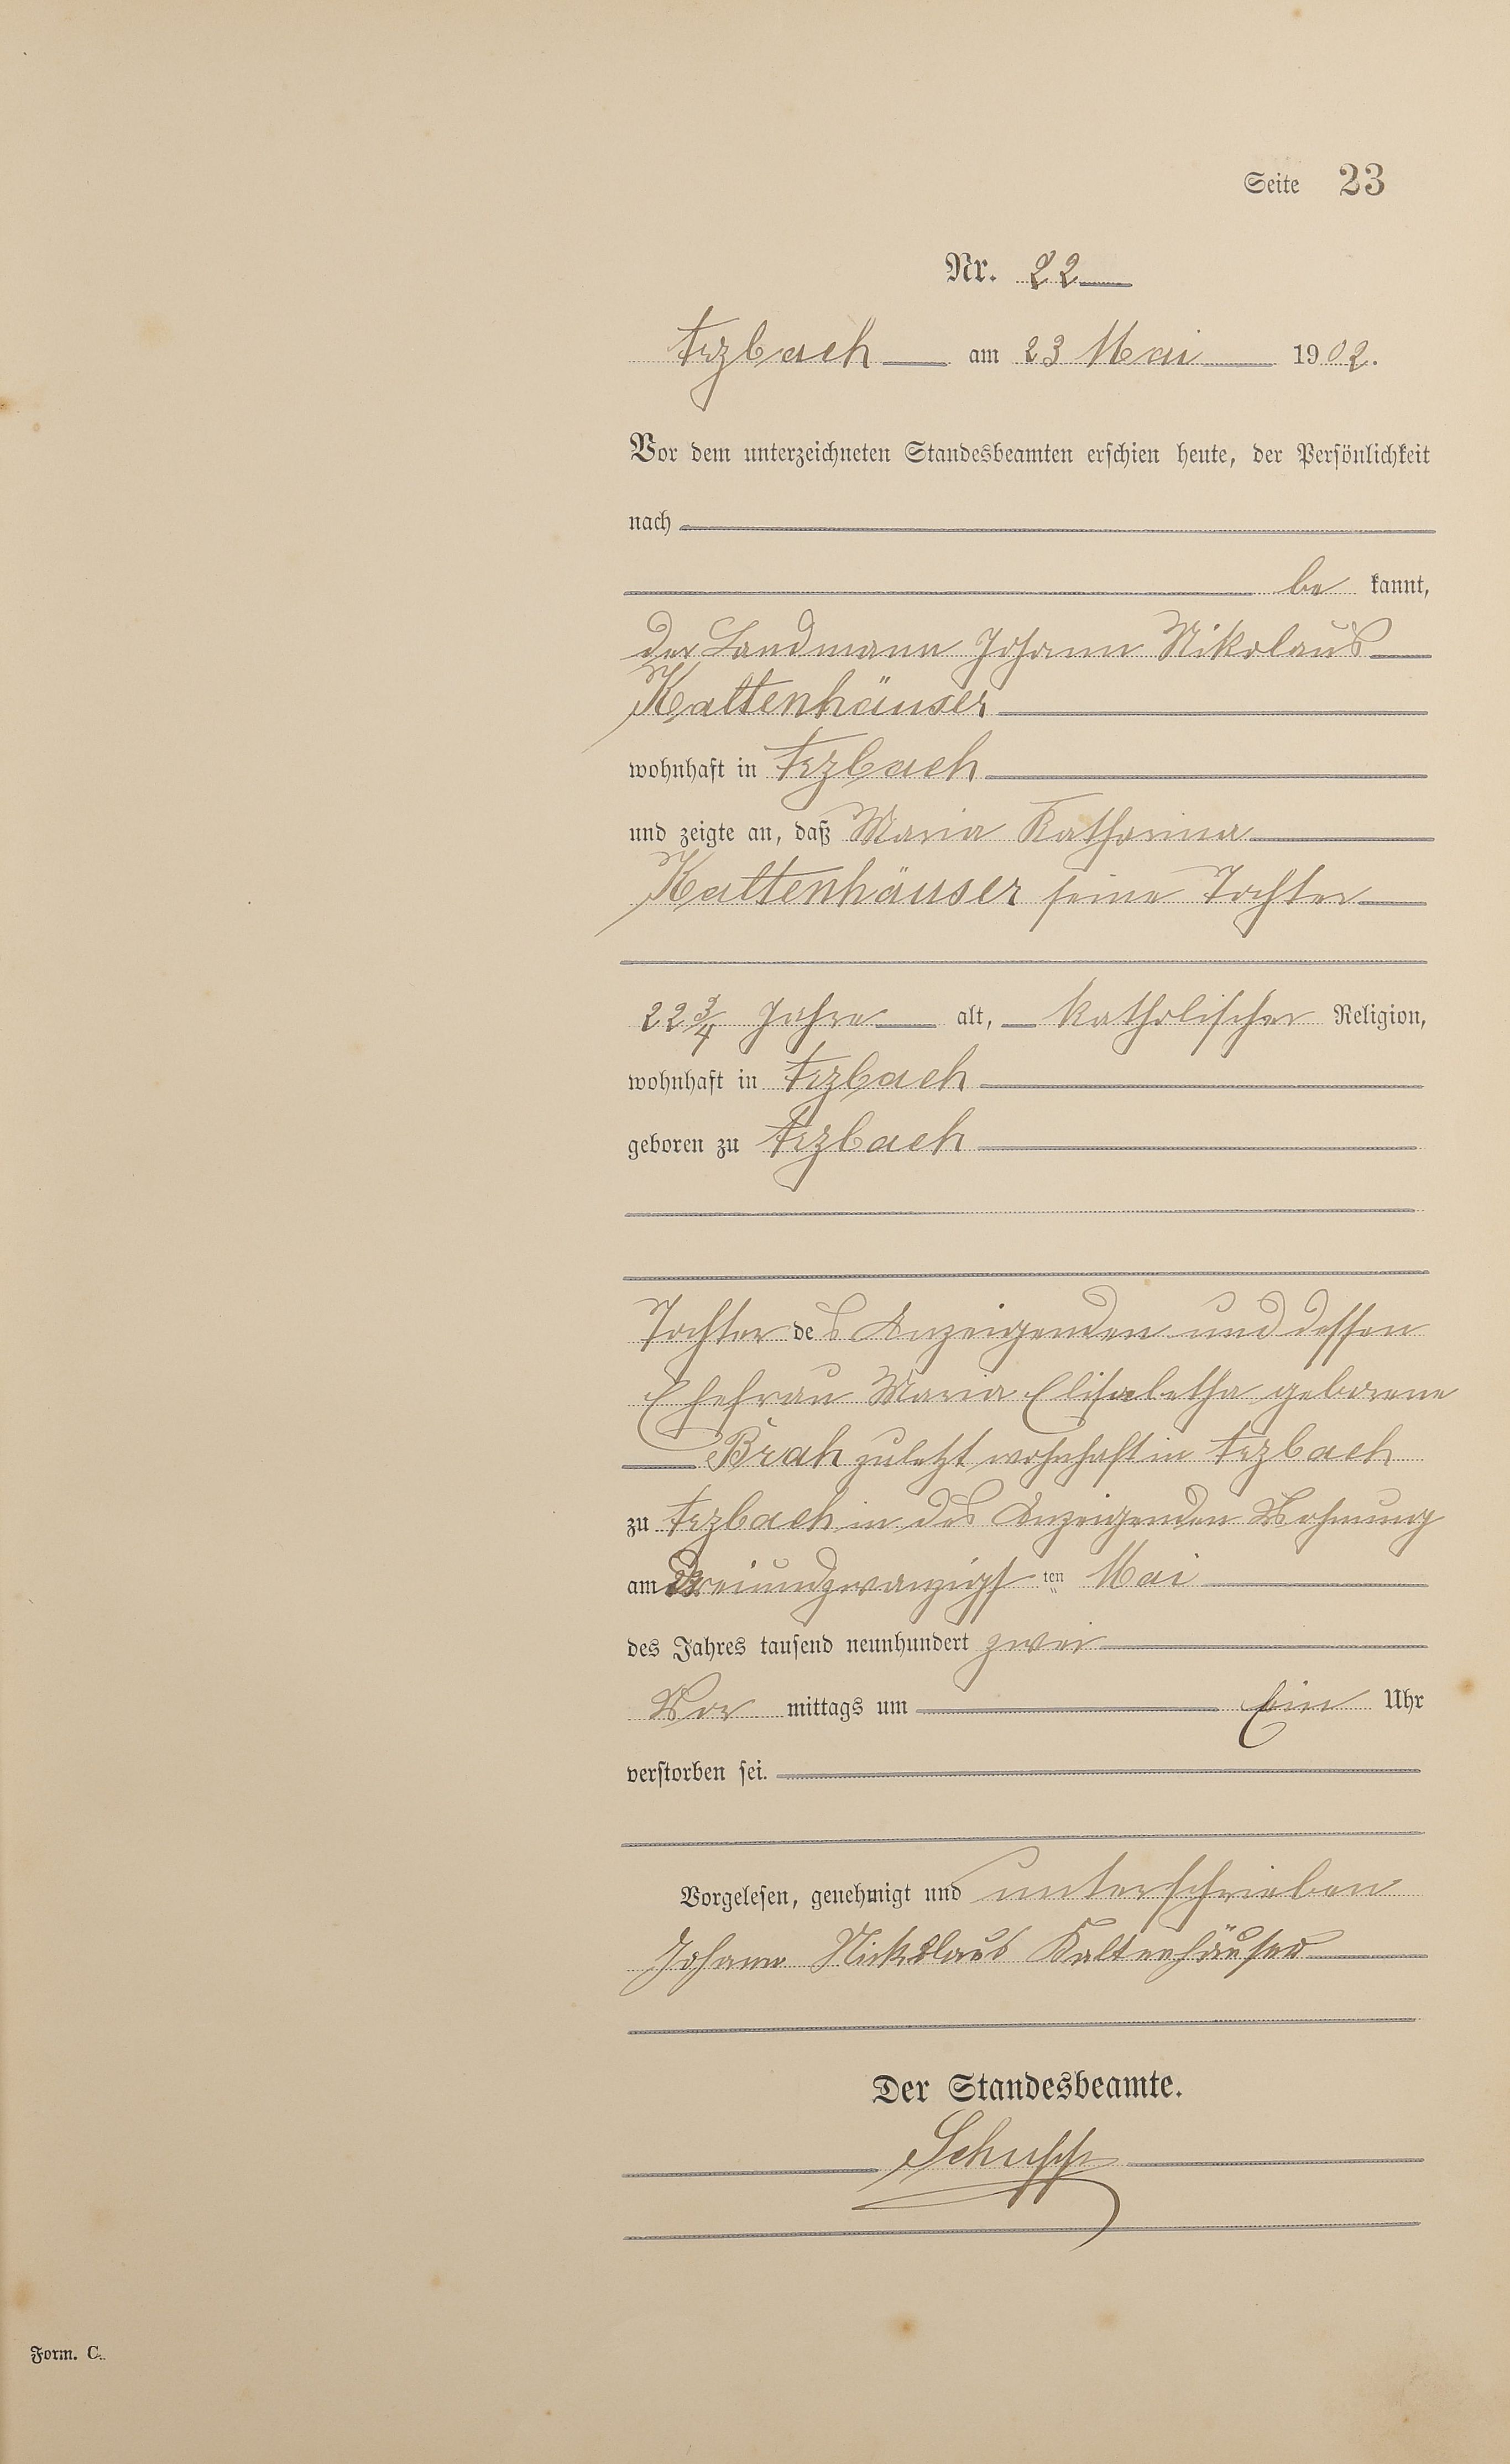 Seite 23
Nr. 22
Arzbach am 23 Mai 1902.
Vor dem unterzeichneten Standesbeamten erschien heute, der Persönlichkeit
nach
be kannt,
der Landmann Johann Nikolaus
Kaltenhäuser
wohnhaft in Arzbach
und zeigte an, daß Maria Katharina
Kaltenhäuser seine Tochter
22 3/4 Jahre alt, katholischer Religion,
wohnhaft in Arzbach
geboren zu Arzbach
Tochter des Anzeigenden und dessen
Ehefrau Maria Elisabetha geborene
Brah zuletzt wohnhaft in Arzbach
zu Arzbach in des Anzeigenden Wohnung
am dreiundzwanzigsten Mai
des Jahres tausend neunhundert zwei
Vor mittags um Ein Uhr
verstorben sei.
Vorgelesen, genehmigt und unterschrieben
Johann Nickolaus Kaltenhäuser
Der Standesbeamte.
Schupp
Form. C.